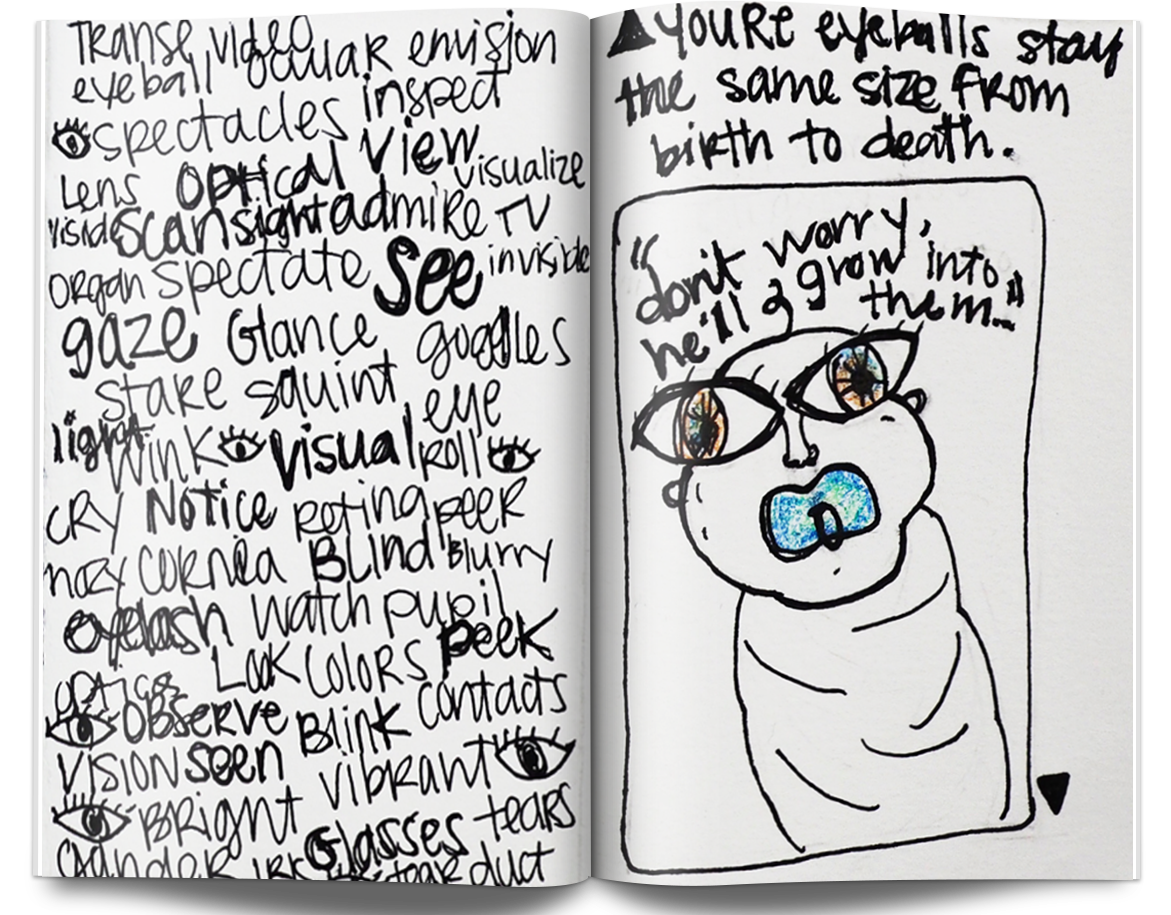 TRANSE video
eyeball ocular envision
spectacles inspect
Lens optical view visualize
scan sight admire TV
organ spectate See invisible
gaze Glance goggles
stare squint eye
light wink visual roll
CRY NOTICE peer
nozy CORNEA BLIND Blurry
eyelash watch pupil
LOOK COLORS peek
OPTICS OBSERVE BLINK contacts
VISION seen vibrant
BRIGHT Glasses tears
Gander tear duct
YOURE eyeballs stay
the same size from
birth to death.
"don't worry,
he'll grow into
them..."